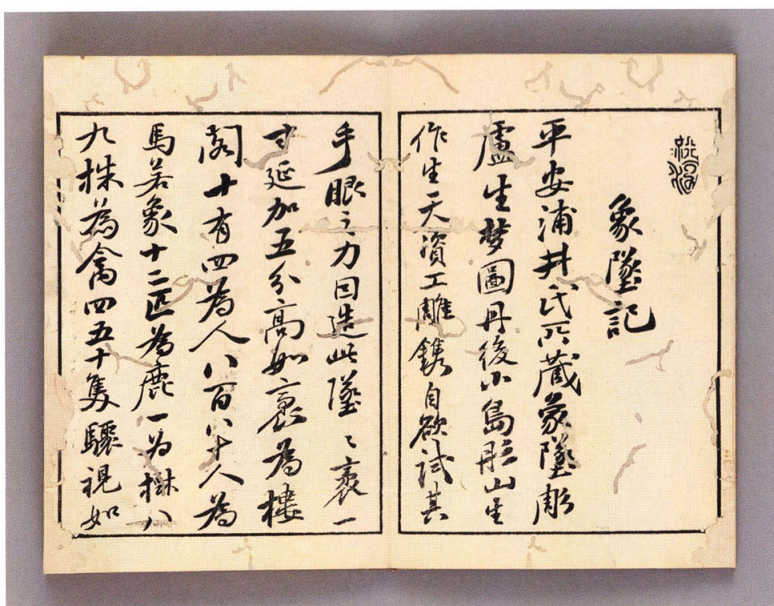 象墜記
平安浦井氏所蔵象墜彫
盧生梦圖丹後小島彤山生
作生天資工雕鐫自欲試其
手眼之力因造此墜〻袤一
寸延加五分高如袤為樓
閣十有四為人八百八十人為
馬若象十二匹為鹿一為樹八
九株為禽四五十隻驟視如